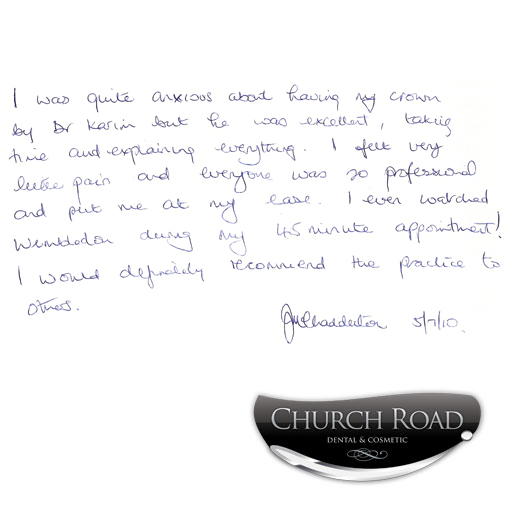 I was quite anxious about having my crown
by Dr Karim but he was excellent, taking
time and explaining everything. I felt very
little pain and everyone was so professional
and put me at my ease. I even watched
Wimbledon during my 45 minute appointment!
I would definitely recommend the practice to
others.
JM Chadderton 5/7/10.
CHURCH ROAD
DENTAL & COSMETIC